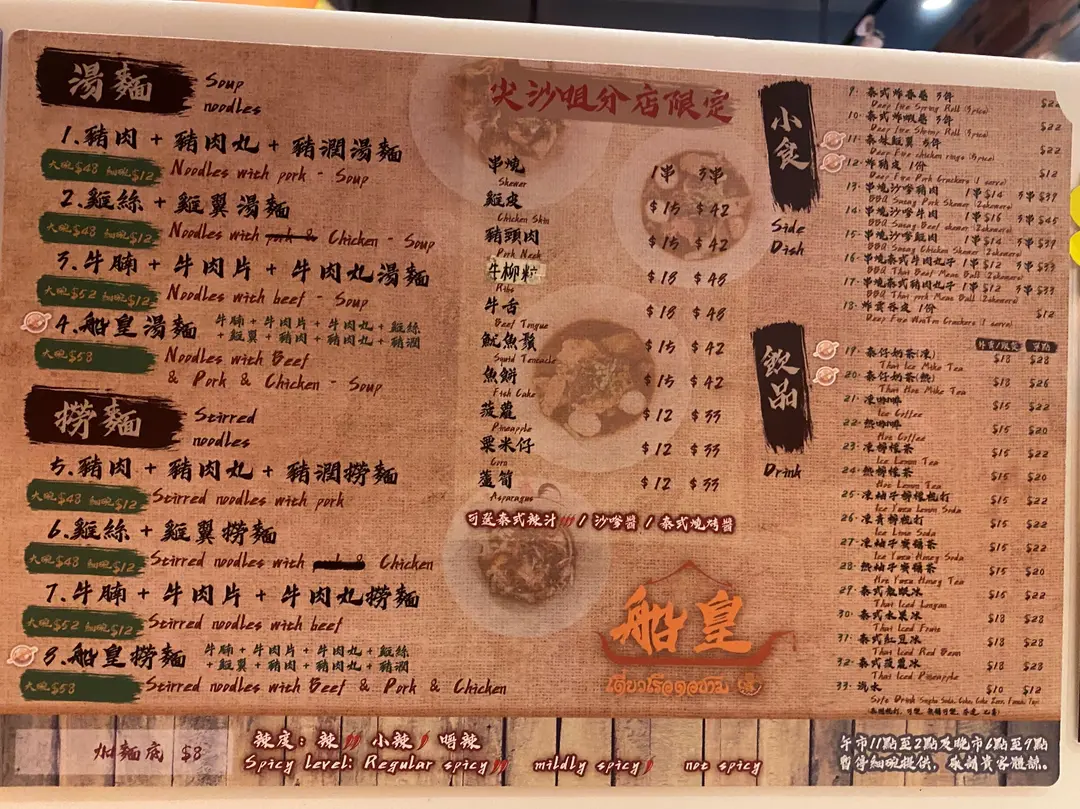 湯麵 Soup noodles
1.豬肉 + 豬肉丸 + 豬潤湯麵
大碗$48 細碗$12 Noodles with pork - Soup
2.雞絲 + 雞翼湯麵
大碗$48 細碗$12 Noodles with pork & Chicken - Soup
3.牛腩 + 牛肉片 + 牛肉丸湯麵
大碗$52 細碗$12 Noodles with beef - Soup
4.船皇湯麵 牛腩 + 牛肉片 + 牛肉丸 + 雞絲
+ 雞翼 + 豬肉 + 豬肉丸 + 豬潤
大碗$58 Noodles with Beef
& Pork & Chicken - Soup
撈麵 Stirred noodles
5.豬肉 + 豬肉丸 + 豬潤撈麵
大碗$48 細碗$12 Stirred noodles with pork
6.雞絲 + 雞翼撈麵
大碗$48 細碗$12 Stirred noodles with Chicken
7.牛腩 + 牛肉片 + 牛肉丸撈麵
大碗$52 細碗$12 Stirred noodles with beef
8.船皇撈麵 牛腩 + 牛肉片 + 牛肉丸 + 雞絲
+ 雞翼 + 豬肉 + 豬肉丸 + 豬潤
大碗$58 Stirred noodles with Beef & Pork & Chicken
尖沙咀分店限定
串燒 1串 3串
Skewer
雞皮 $15 $42
Chicken Skin
豬頸肉 $15 $42
Pork Neck
牛柳粒 $18 $48
Ribs
牛舌 $18 $48
Beef Tongue
魷魚鬚 $15 $42
Squid Tentacle
魚餅 $15 $42
Fish Cake
菠蘿 $12 $33
Pineapple
粟米仔 $12 $33
Corn
蘆筍 $12 $33
Asparagus
可選泰式辣汁 / 沙嗲醬 / 泰式燒烤醬
船皇
小食
Side Dish
9. 泰式炸春卷 3件 $22
Deep Fire Spring Roll (3pics)
10. 泰式炸蝦卷 3件 $22
Deep Fire Shrimp Roll (3pics)
11. 泰妹雞翼 3件 $22
Deep Fire chicken rings (3pics)
12. 炸豬皮 1份 $12
Deep Fire Pork Crackers (1 serve)
13. 串燒沙嗲豬肉 1串$14 3串$39
BBQ Satay Pork Skewer (2skewers)
14. 串燒沙嗲牛肉 1串$16 3串$45
BBQ Satay Beef skewer (2skewers)
15. 串燒沙嗲雞肉 1串$14 3串$39
BBQ Satay Chicken Skewer (2skewers)
16. 串燒泰式牛肉丸子 1串$12 3串$33
BBQ Thai Beef Meat Ball (2skewers)
17. 串燒泰式豬肉丸子 1串$12 3串$33
BBQ Thai pork Meat Ball (2skewers)
18. 炸雲吞皮 1份 $12
Deep Fire WonTon Crackers (1 serve)
飲品
Drink
單點
19. 泰仔奶茶(凍) $18 $28
Thai Ice Milk Tea
20. 泰仔奶茶(熱) $18 $26
Thai Hot Milk Tea
21. 凍咖啡 $15 $22
Ice Coffee
22. 熱咖啡 $15 $20
Hot Coffee
23. 凍檸檬茶 $15 $22
Ice Lemon Tea
24. 熱檸檬茶 $15 $20
Hot Lemon Tea
25. 凍柚子檸檬梳打 $15 $22
Ice Yuzu Lemon Soda
26. 凍青檸梳打 $15 $22
Ice Lime Soda
27. 凍柚子蜜糖茶 $15 $22
Ice Yuzu Honey Soda
28. 熱柚子蜜糖茶 $15 $20
Hot Yuzu Honey Tea
29. 泰式龍眼冰 $15 $22
Thai Iced Longan
30. 泰式水果冰 $18 $28
Thai Iced Fruits
31. 泰式紅豆冰 $18 $28
Thai Iced Red Bean
32. 泰式菠蘿冰 $18 $28
Thai Iced Pineapple
33. 汽水 $10 $12
加麵底 $8
辣度: 辣 小辣 唔辣
Spicy level: Regular spicy mildly spicy not spicy
午市11點至2點及晚市6點至9點
暫停細碗提供，敬請貴客體諒。